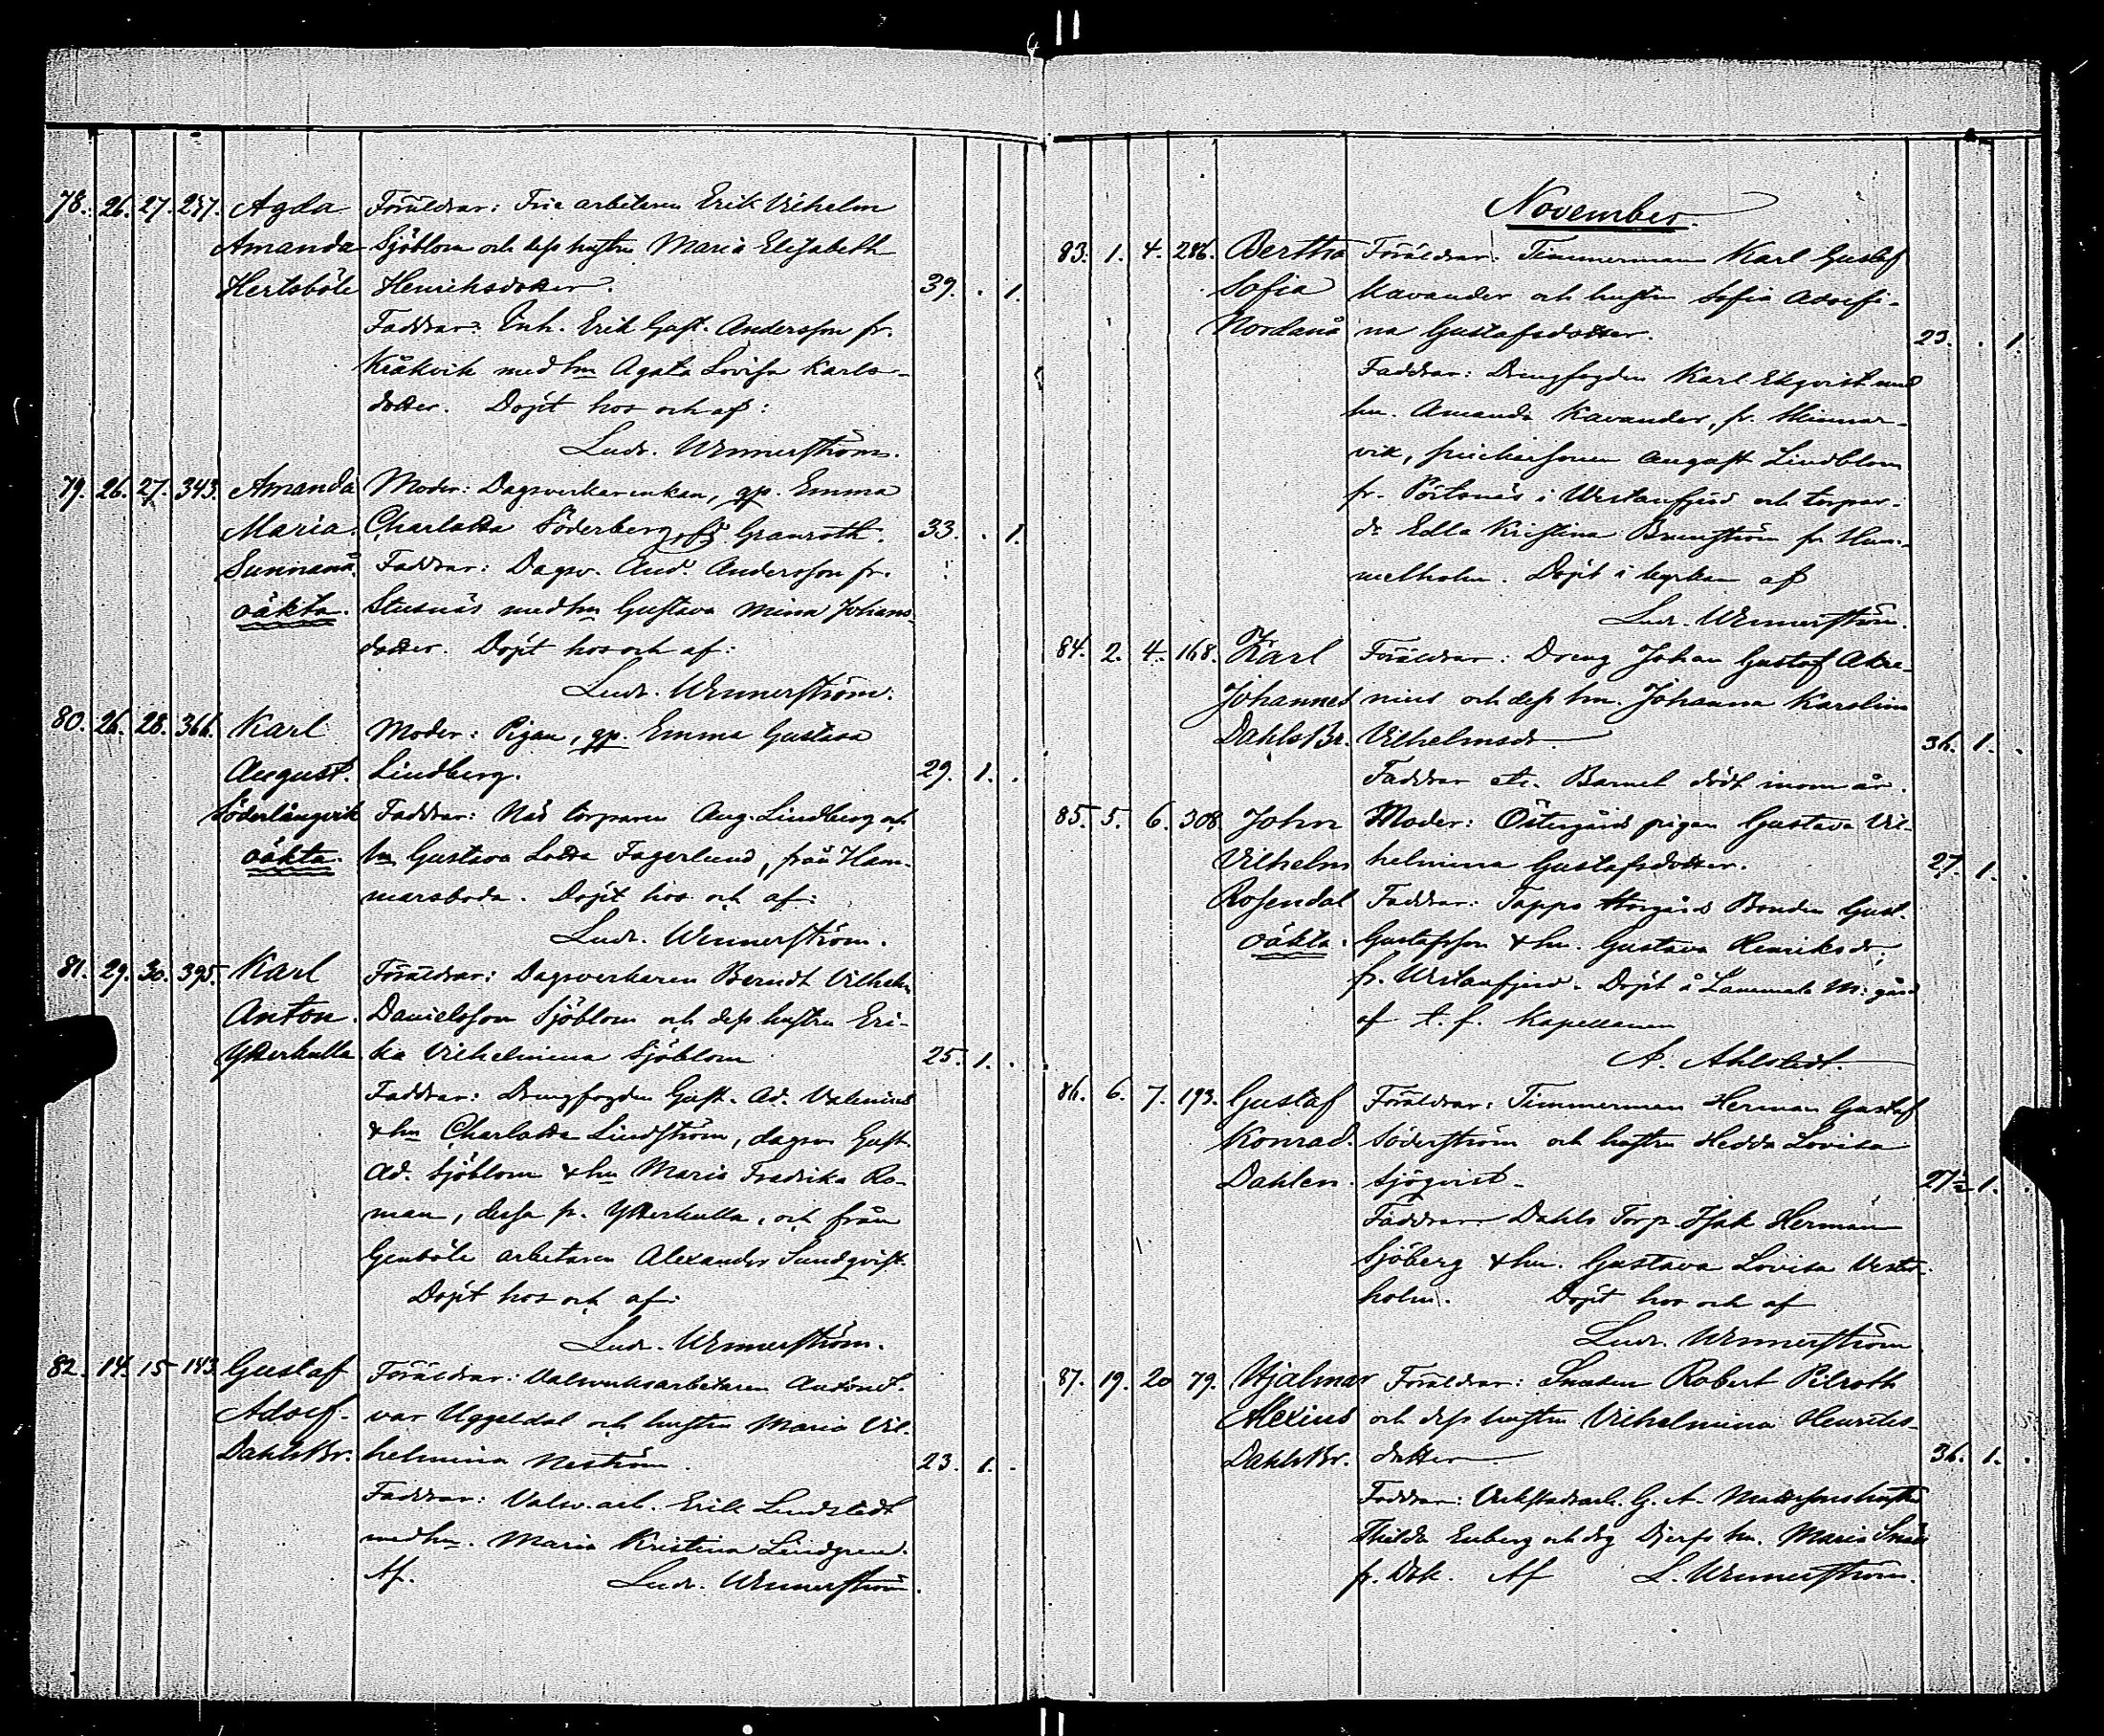 78. 26. 27. 287. Agda Föräldrar: Fria arbetaren Erik Vilhelm
Amanda Sjöblom och dess hustru Maria Elisabeth
Hertsböle Henriksdotter. 39. . 1.
Faddrar: Inh. Erik Gust. Andersson fr.
Kråkvik med hu Agata Lovisa Karls-
dotter. Döpt hos och af:
Ludv. Wennerström.
79. 26. 27. 343. Amanda Moder: Dagsverkarenkan, gp. Emma
Maria. Charlotta Söderberg, f. Granroth. 33. . 1.
Sunnanå. Faddrar: Dagsv. And. Andersson fr.
oäkta. Stusnäs med hu Gustava Mina Johans-
dotter. Döpt hos och af:
Ludv. Wennerström.
80. 26. 28. 366. Karl Moder: Pigan, gp. Emma Gustava
August. Lindberg. 29. 1. .
Söderlångvik Faddrar: Näs torparen Aug. Lindberg och
oäkta. hu Gustava Lotta Fagerlund, från Ham-
marsboda. Döpt hos och af:
Ludv. Wennerström.
81. 29. 30. 395. Karl Föräldrar: Dagsverkaren Berndt Vilhelm
Anton. Danielsson Sjöblom och dess hustru Eri-
Ytterkulla. ka Vilhelmina Sjöblom 25. 1. .
Faddrar: Drengfogden Gust. Ad. Valenius
& hu Charlotta Lindström, dagsv Gust.
Ad. Sjöblom & hu Maria Fredrika Ro-
man, dessa fr. Ytterkulla, och från
Genböle arbetaren Alexander Sundqvist.
Döpt hos och af:
Ludv. Wennerström.
82. 14. 15 143. Gustaf Föräldrar: Valsverksarbetaren
Adolf. var Uggeldal och hustru Maria Vil-
Dahls Br. helmina Neström. 23. 1. .
Faddrar: Valsv. arb. Erik Lindstedt
med hu. Maria Kristina Lindgren.
Af. Ludv. Wennerström.
November.
83. 1. 4. 286. Bertha Föräldrar: Timmerman Karl Gustaf
Sofia Kavander och hustru Sofia Adolfi-
Nordanå na Gustafsdotter. 23. . 1.
Faddrar: Drengfogden Karl Ekqvist med
hu. Amanda Kavander, fr.
vik, August Lindblom
fr. Pörtsnäs i Westanfjerd och torpar-
dr Edla Kristina fr Hem-
melholm. Döpt i kyrkan af
Ludv. Wennerström.
84. 2. 4. 168. Karl Föräldrar: Dreng Johan Gustaf Akre-
Johannes nius och dess hu. Johanna Karolina
Dahls Br. Vilhelmsdr 36. 1. .
Faddrar etc. Barnet dödt inom år.
85. 5. 6. 308 John Moder: Östergårds pigan Gustava Vil-
Vilhelm helmina Gustafsdotter. 27. 1. .
Rosendal Faddrar: Tappo Storgårds Bonden Gust.
oäkta. Gustafsson & hu. Gustava Henriksdr,
fr. Westanfjerd. Döpt å Lammala M: gård
af t. f. Kapellanen
A. Ahlstedt.
86. 6. 7. 193. Gustaf Föräldrar: Timmerman Herman Gustaf
Konrad. Söderström och hustru Hedda Lovisa
Dahlen. Sjöqvist. 27½ 1. .
Faddrar: Dahls Torp. Isak Herman
Sjöberg & hu. Gustava Lovisa Vester-
holm. Döpt hos och af
Ludv. Wennerström.
87. 19. 20 79. Hjalmar Föräldrar: Smeden Robert Pilroth
Alexius och dess hustru Vilhelmina Henriks-
Dahls Br. dotter 36. 1. .
Faddrar: Verkstadsarb. G. A. Mattssons hustru
Thilda Enberg och Djerfs hu. Maria
fr. Af L. Wennerström.